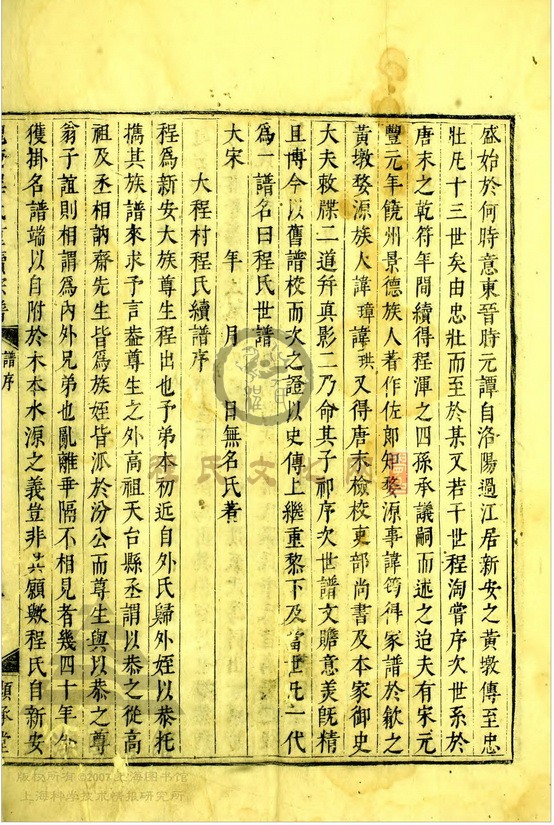 盛始於何時意東晉時元譚自洛陽過江居新安之黃墩傳至忠
壯凡十三世矣由忠壯而至於某又若干世程淘嘗序次世系於
唐末之乾符年間續得程渾之四孫承議嗣而述之迨夫有宋元
豐元年饒州景德族人著作佐郎知婺源事諱筠得家譜於歙之
黃墩婺源族人諱璋諱珙又得唐末檢校吏部尚書及本家御史
大夫敕牒二道并真影二乃命其子祁序次世譜文贍意美既精
且博今以舊譜校而次之證以史傳上繼重黎下及當世凡一代
爲一譜名曰程氏世譜
大宋 年 月 日無名氏著
大程村程氏續譜序
程爲新安大族尊生程出也予弟本初近自外氏歸外姪以恭托
攜其族譜來求予言葢尊生之外高祖天台縣丞謂以恭之從高
祖及丞相訥齋先生皆爲族姪皆派於汾公而尊生與以恭之尊
翁子誼則相謂爲內外兄弟也亂離乖隔不相見者幾四十年今
獲掛名譜端以自附於木本水源之義豈非其願歟程氏自新安
譜序
顧承堂
版权所有©2007上海图书馆
上海科学技术情报研究所